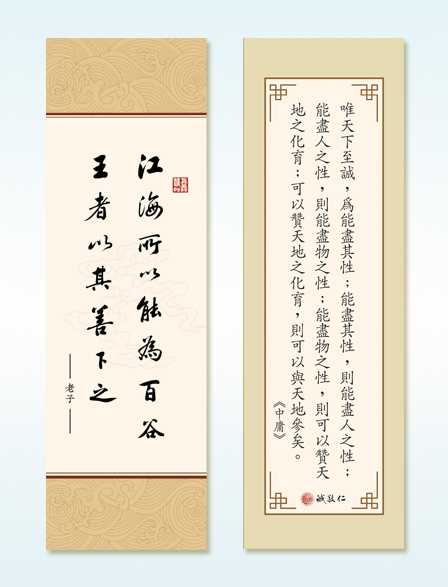 江海所以能為百谷
王者以其善下之
老子
唯天下至誠，爲能盡其性；能盡其性，則能盡人之性；
能盡人之性，則能盡物之性；能盡物之性，則可以贊天
地之化育；可以贊天地之化育，則可以與天地參矣。
《中庸》
誠敬仁